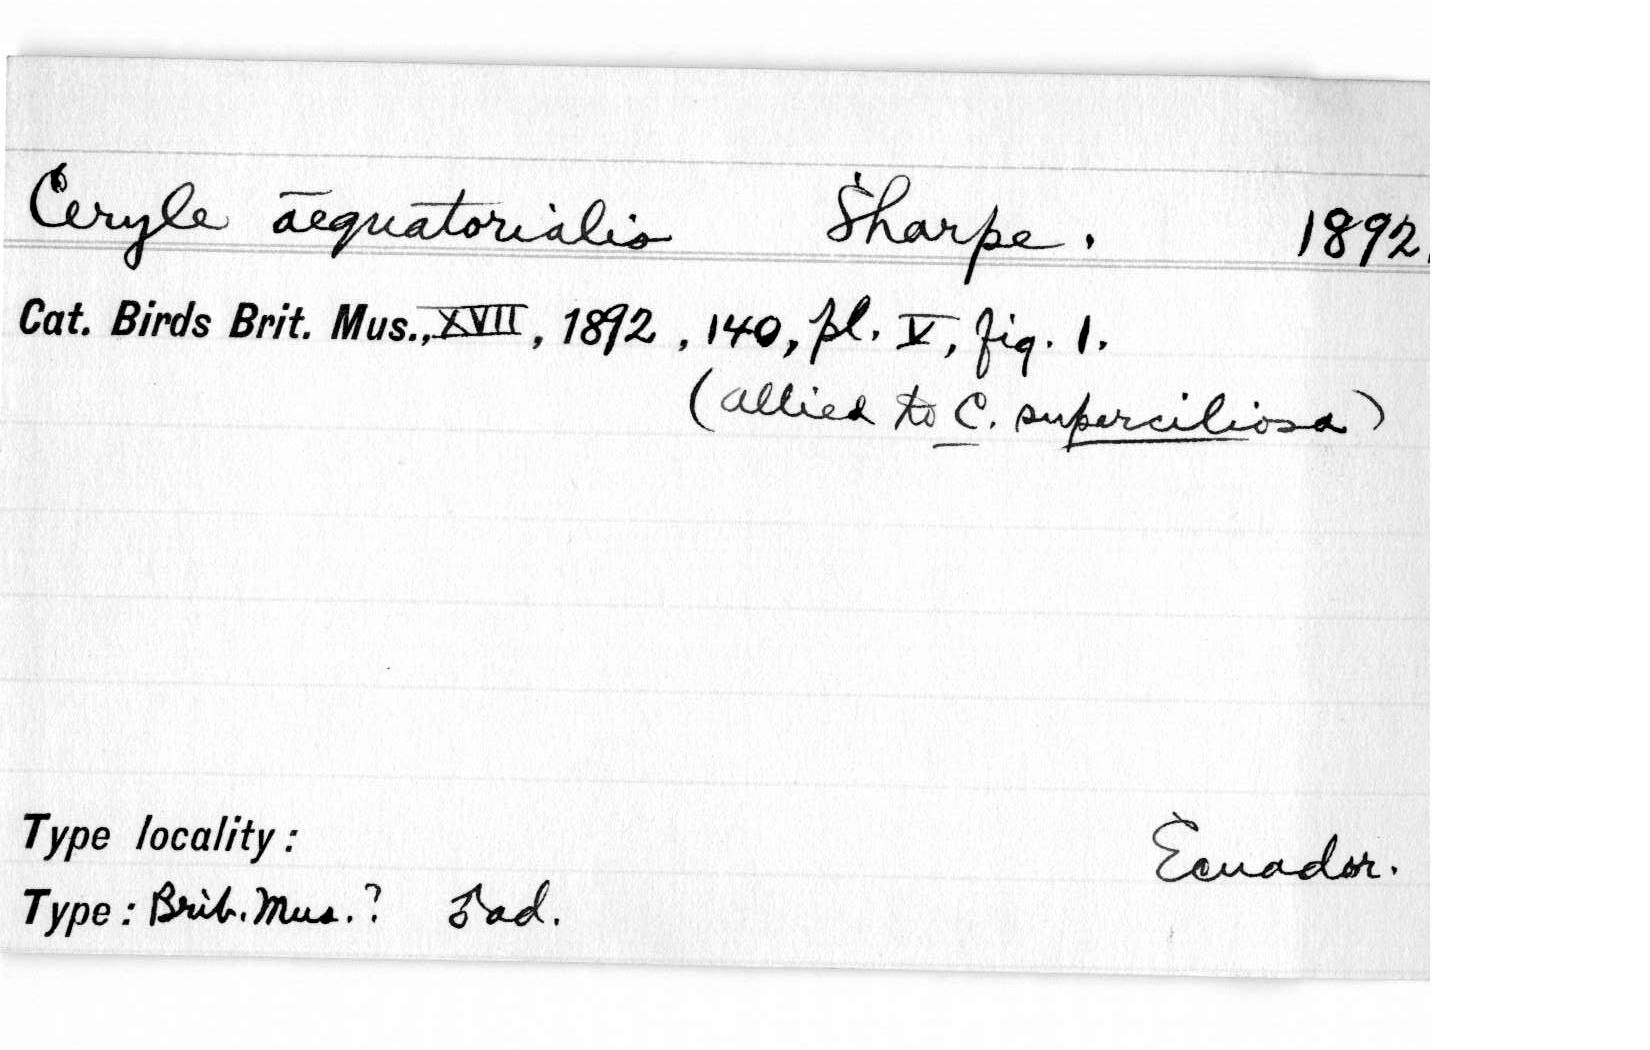 Ceryle aequatorialis Sharpe. 1892.
Cat. Birds Brit. Mus., XVII, 1892, 140, pl. V, fig. 1.
(allied to C. superciliosa)
Type locality: Ecuador.
Type: Brit. Mus.? ♂ ad.